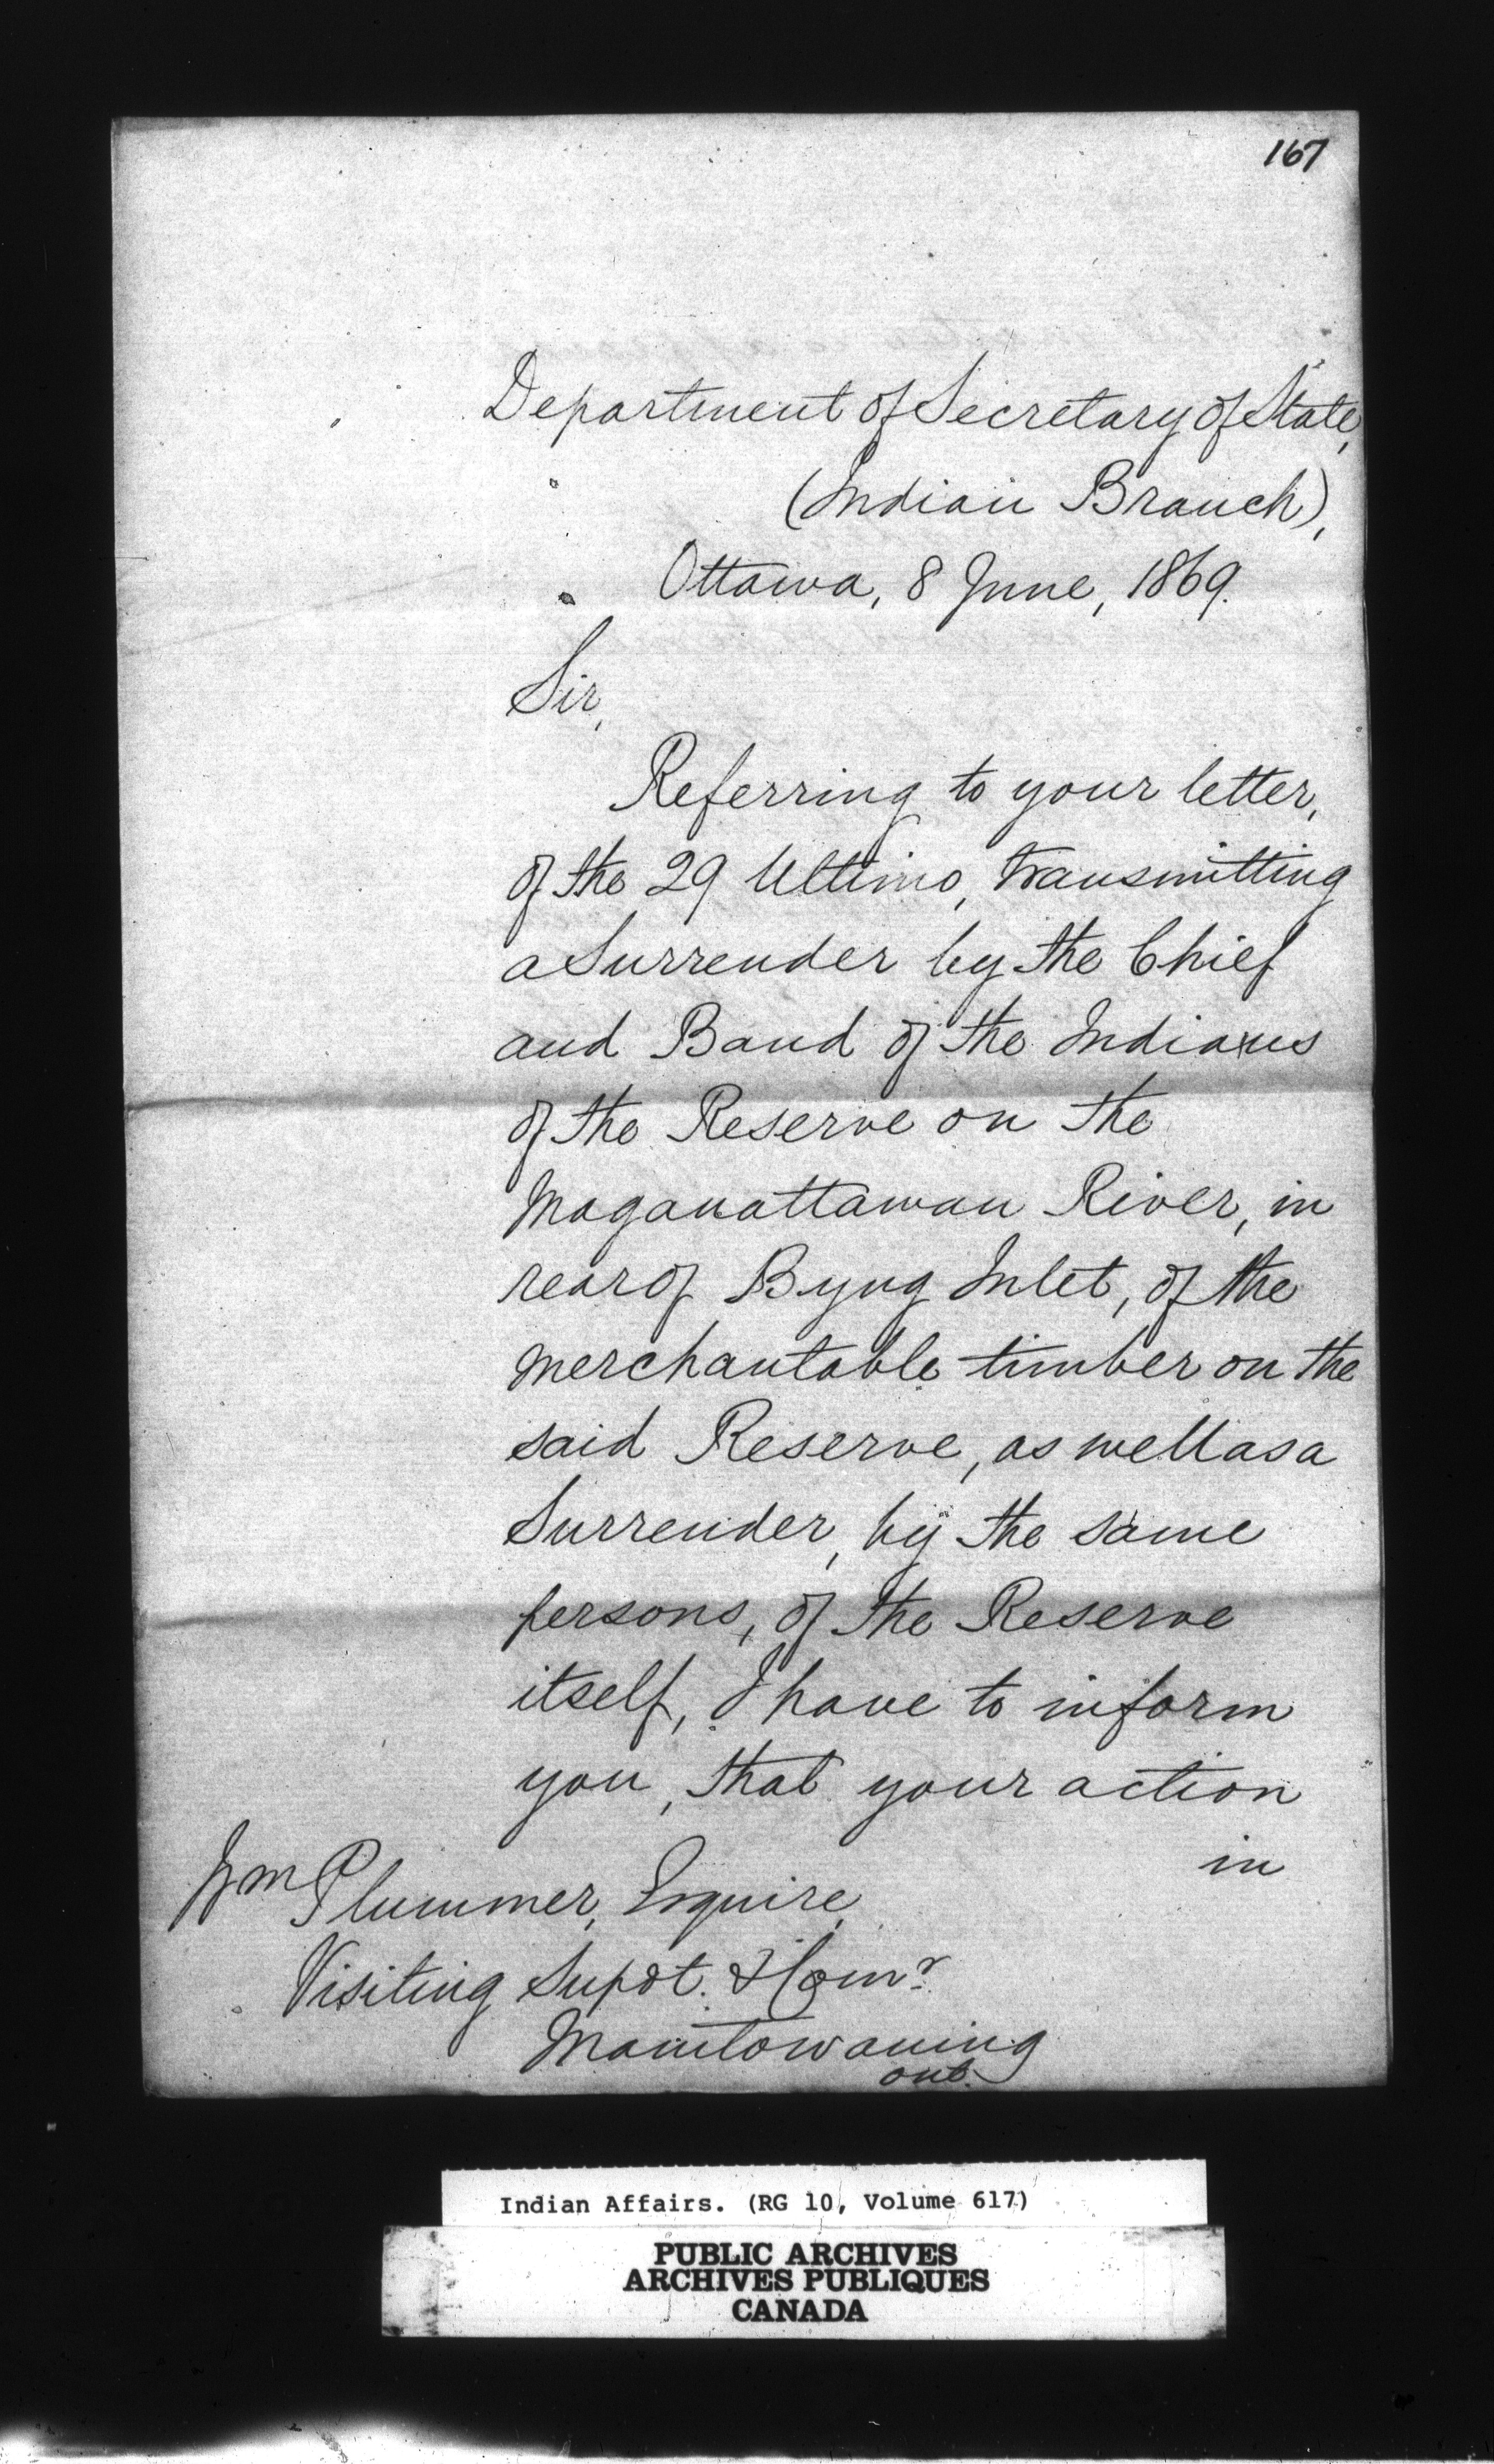 167
Department of Secretary of State,
(Indian Branch),
Ottawa, 8 June, 1869.
Sir,
Referring to your letter,
of the 29 Ultimo, transmitting
a Surrender by the Chief
and Band of the Indians
of the Reserve on the
Maganattawan River, in
rear of Byng Inlet, of the
merchantable timber on the
said Reserve, as well as a
Surrender, by the same
persons, of the Reserve
itself, I have to inform
you, that your action
in
Wm Plummer, Esquire,
Visiting Supdt. & Comr.
Manitowaning
Ont.
Indian Affairs. (RG 10, Volume 617)
PUBLIC ARCHIVES
ARCHIVES PUBLIQUES
CANADA